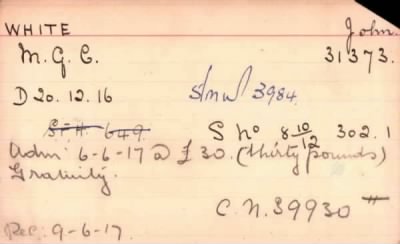 WHITE John.
M. G. C. 31373.
D 20.12.16 S/nw/ 3984.
649. S No 8 10/12 302.1
Adm 6-6-17 @ £30. (thirty pounds)
Gratuity.
C.N. 39930
Rec: 9-6-17.